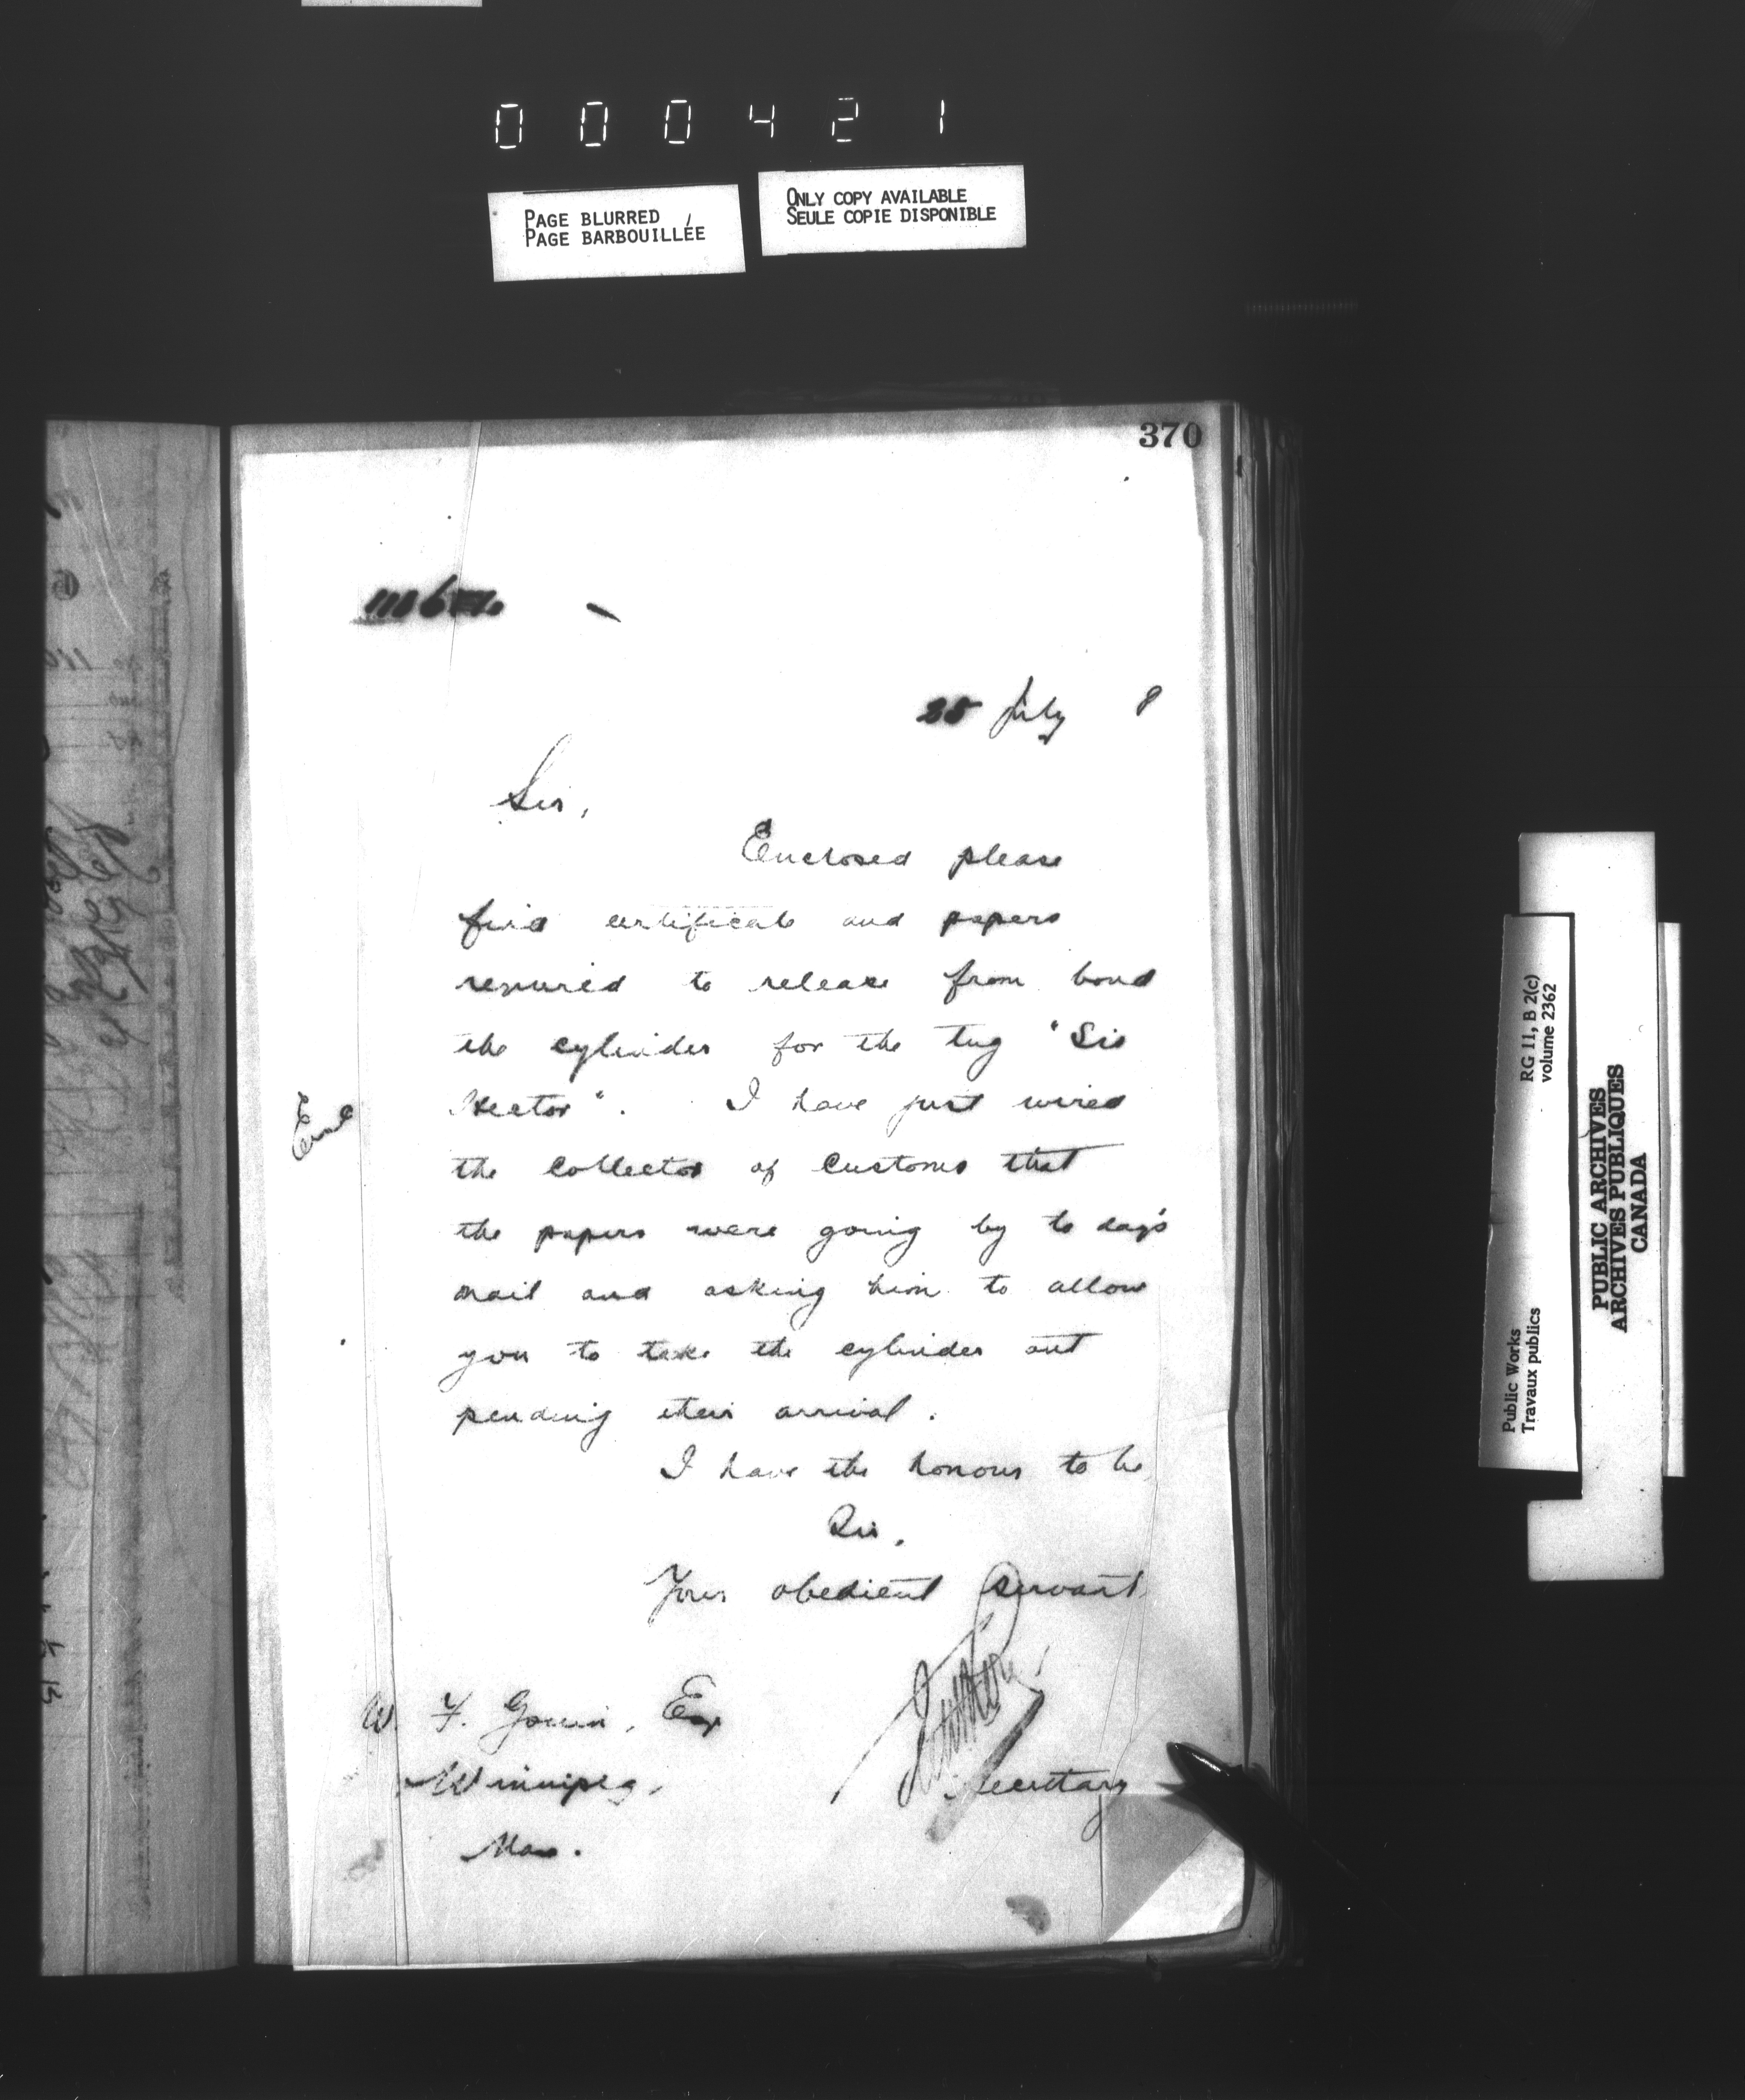 000421
PAGE BLURRED
PAGE BARBOUILLÉE
ONLY COPY AVAILABLE
SEULE COPIE DISPONIBLE
370
25 July 8
Sir,
Enclosed please
find certificate and papers
required to release from bond
the cylinder for the tug "Sir
Hector". I have just wired
Encl
the Collector of Customs that
the papers were going by to day's
mail and asking him to allow
you to take the cylinder out
pending their arrival.
I have the honour to be
Sir,
Your obedient servant
W. F. Gouin, Esq
Winnipeg,
Secretary
Man.
Public Works
Travaux publics
RG 11, B 2(c)
volume 2362
PUBLIC ARCHIVES
ARCHIVES PUBLIQUES
CANADA